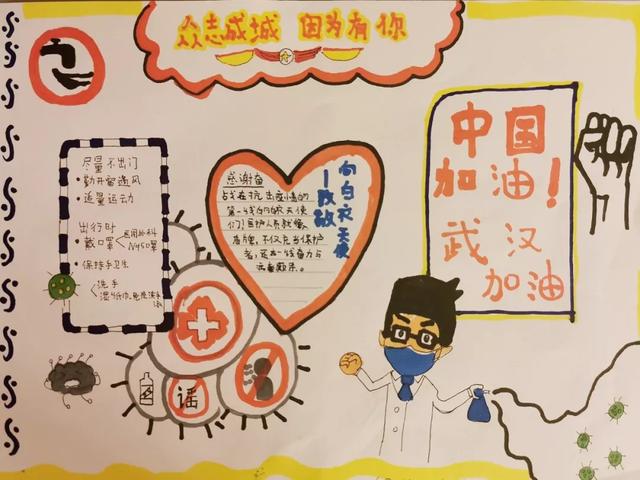 众志成城 因为有你
尽量不出门
• 勤开窗通风
• 适量运动
出行时
• 戴口罩 医用外科
N95口罩
• 保持手卫生
洗手
湿纸巾、免洗洗手液
感谢奋
战在抗击疫情的
第一线的白衣天使
们！医护人员就像
盾牌，不仅充当保护
者，还在一线奋力与
病毒厮杀。
向白衣天使
—致敬
谣
中国
加油！
武汉
加油